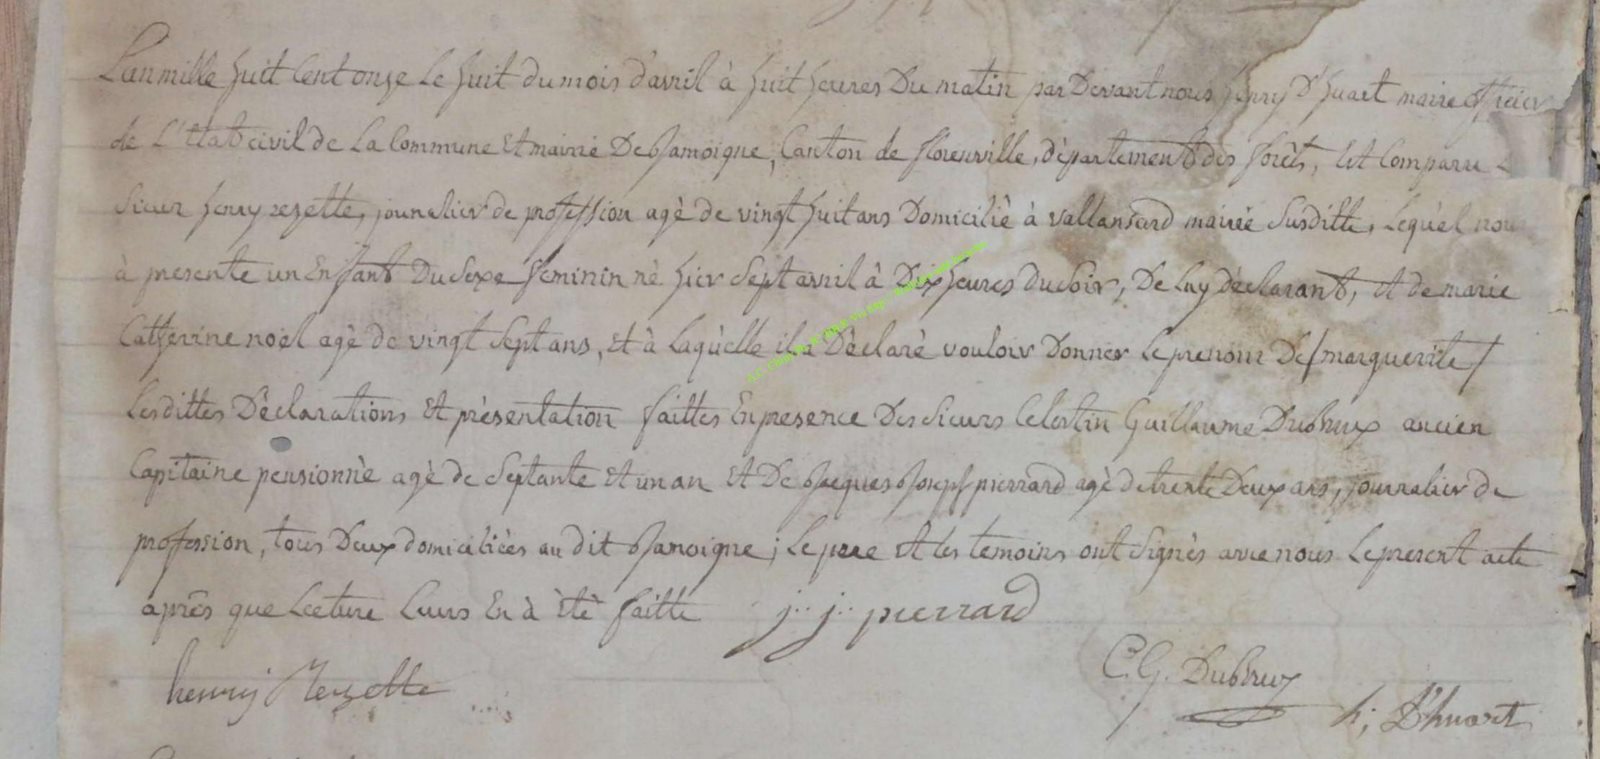 L'an mille huit cent onze le huit du mois d'avril à huit heures Du matin par Devant nous henry D'huart maire officier
de L'Etat civil de La Commune et mairie De Jamoigne, Canton de florenville, département des forêts, Est Comparu
Sieur henry rezette, journalier de profession agé de vingt huit ans Domicilié à vallansard mairie Susditte, Lequel nous
à presenté un Enfant Du Sexe feminin né hier Sept avril à Dix heures du soir, De Luy déclarant, et de marie
Catherine noël agé de vingt Sept ans, et à Laquelle il a Déclaré vouloir Donner Le prenom De / marguerite /
Lesdittes Déclarations et présentation faittes En presence Des Sieurs Celestin Guillaume Dubrux ancien
Capitaine pensionné agé de Septante et un an et De Jacques Joseph pierrard agé de trente Deux ans, journalier de
profession, tous Deux domiciliées au dit Jamoigne; Le pere et les temoins ont Signés avec nous Le present acte
après que Lecture Leurs En à été faitte j: j: pierrard
henrij Rezette
C. G. Dubrux
h; D'huart